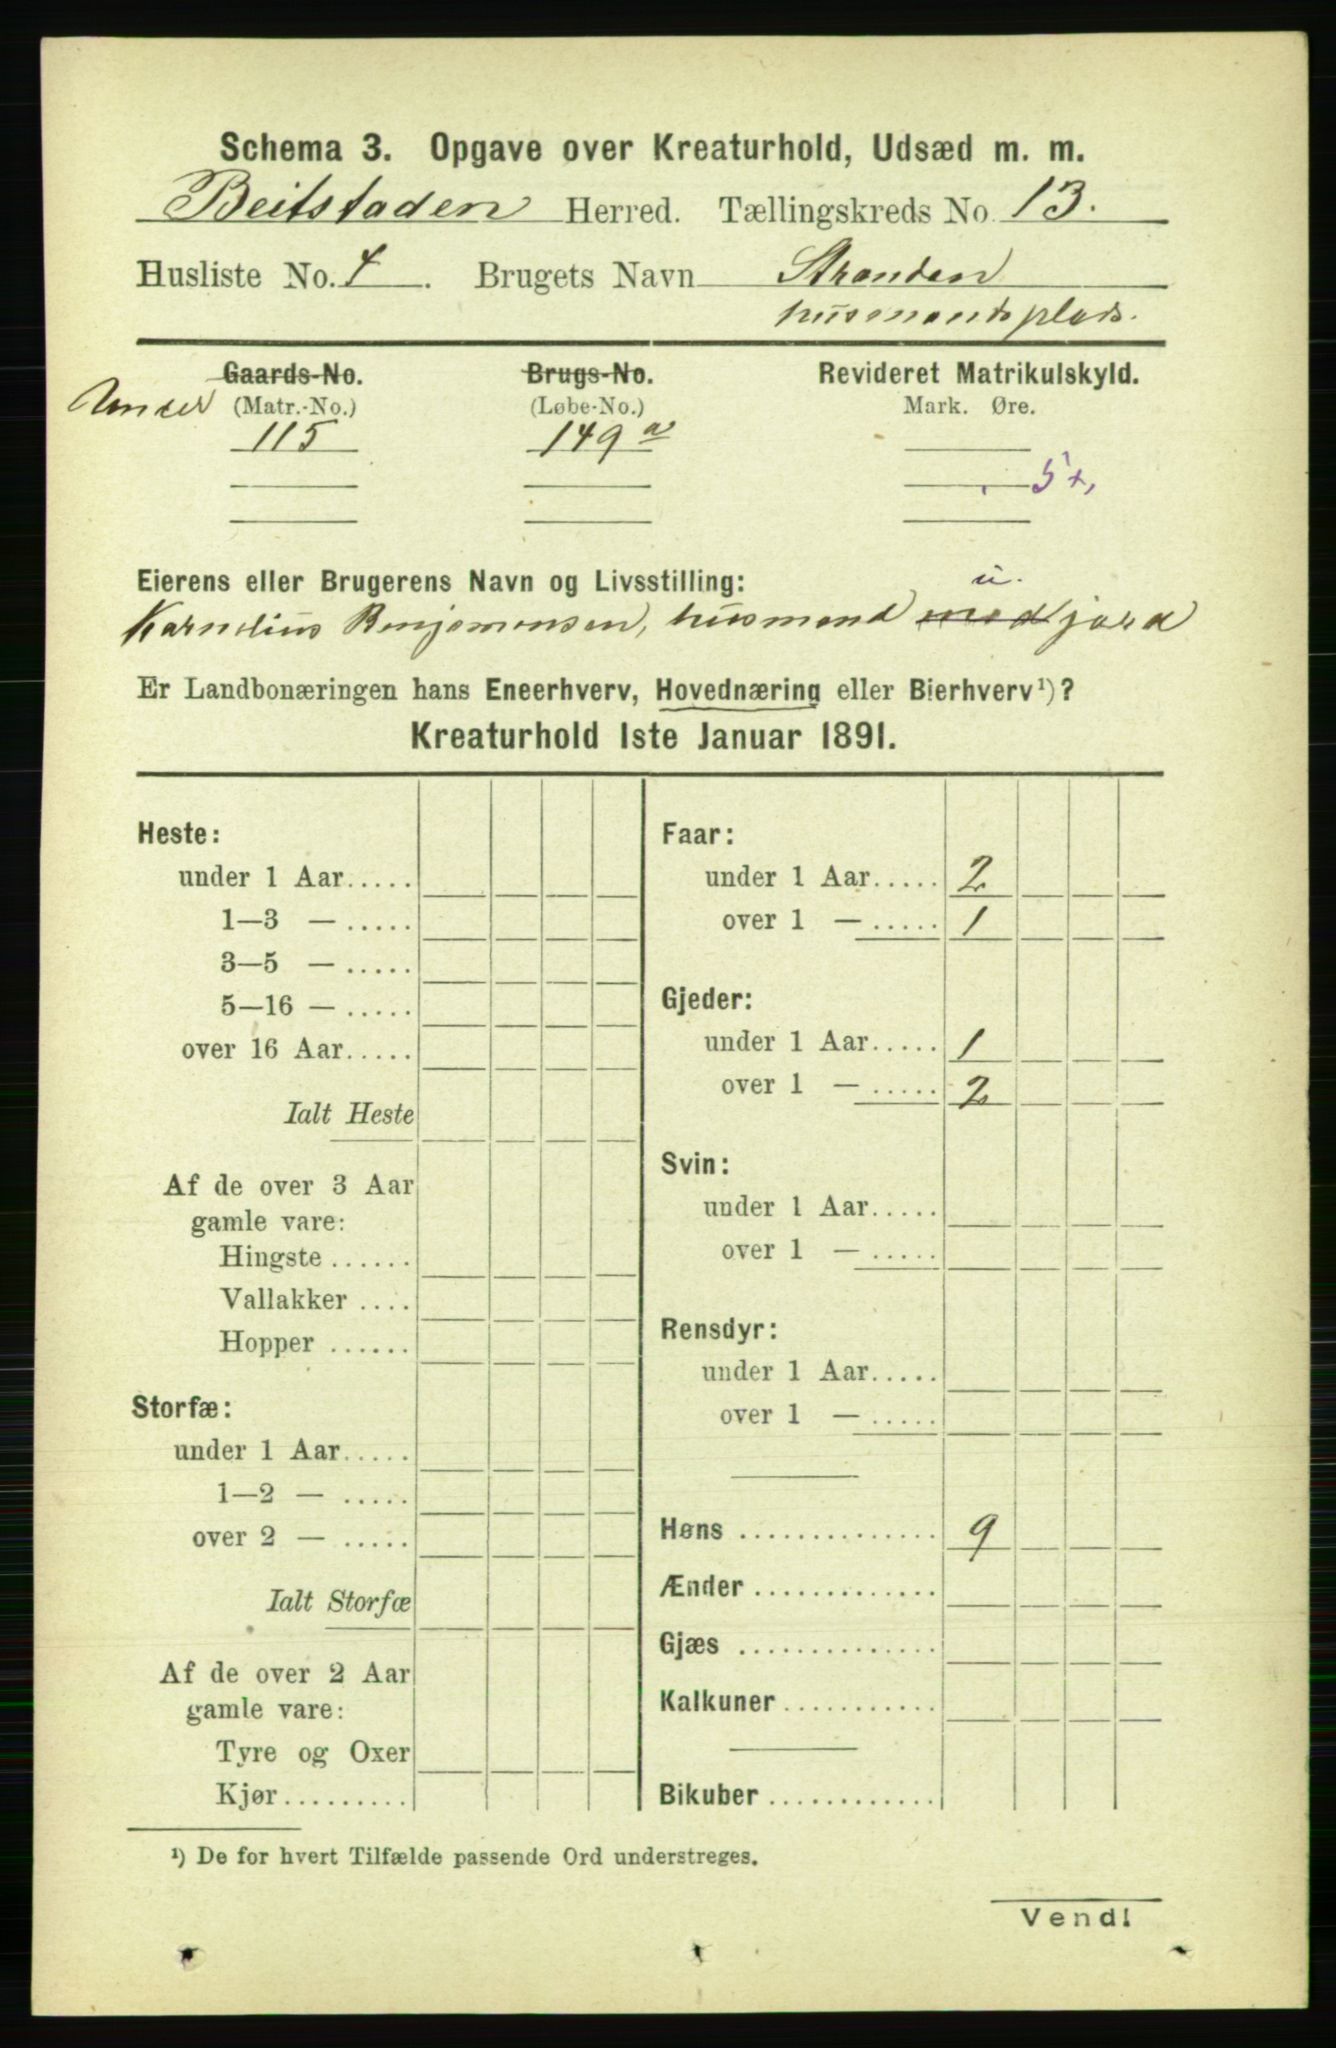 Schema 3. Opgave over Kreaturhold, Udsæd m. m.
Beitstaden Herred. Tællingskreds No. 13.
Husliste No. 4. Brugets Navn Stranden
husmandsplads.
Gaards-No. Brugs-No. Revideret Matrikulskyld.
Under (Matr.-No.) (Løbe-No.) Mark. Øre.
115 149 a
5+,
Eierens eller Brugerens Navn og Livsstilling:
u.
Karnelius Benjamensen, husmand med jord
Er Landbonæringen hans Eneerhverv, Hovednæring eller Bierhverv¹)?
Kreaturhold 1ste Januar 1891.
Heste:
under 1 Aar.....
1—3 — .....
3—5 — .....
5—16 — .....
over 16 Aar.....
Ialt Heste
Af de over 3 Aar
gamle vare:
Hingste ......
Vallakker ....
Hopper ......
Storfæ:
under 1 Aar.....
1—2 — .....
over 2 — .....
Ialt Storfæ
Af de over 2 Aar
gamle vare:
Tyre og Oxer
Kjør.........
Faar:
under 1 Aar..... 2
over 1 — ..... 1
Gjeder:
under 1 Aar..... 1
over 1 — ..... 2
Svin:
under 1 Aar.....
over 1 — .....
Rensdyr:
under 1 Aar.....
over 1 — .....
Høns .............. 9
Ænder .............
Gjæs ..............
Kalkuner ...........
Bikuber ............
¹) De for hvert Tilfælde passende Ord understreges.
Vend!